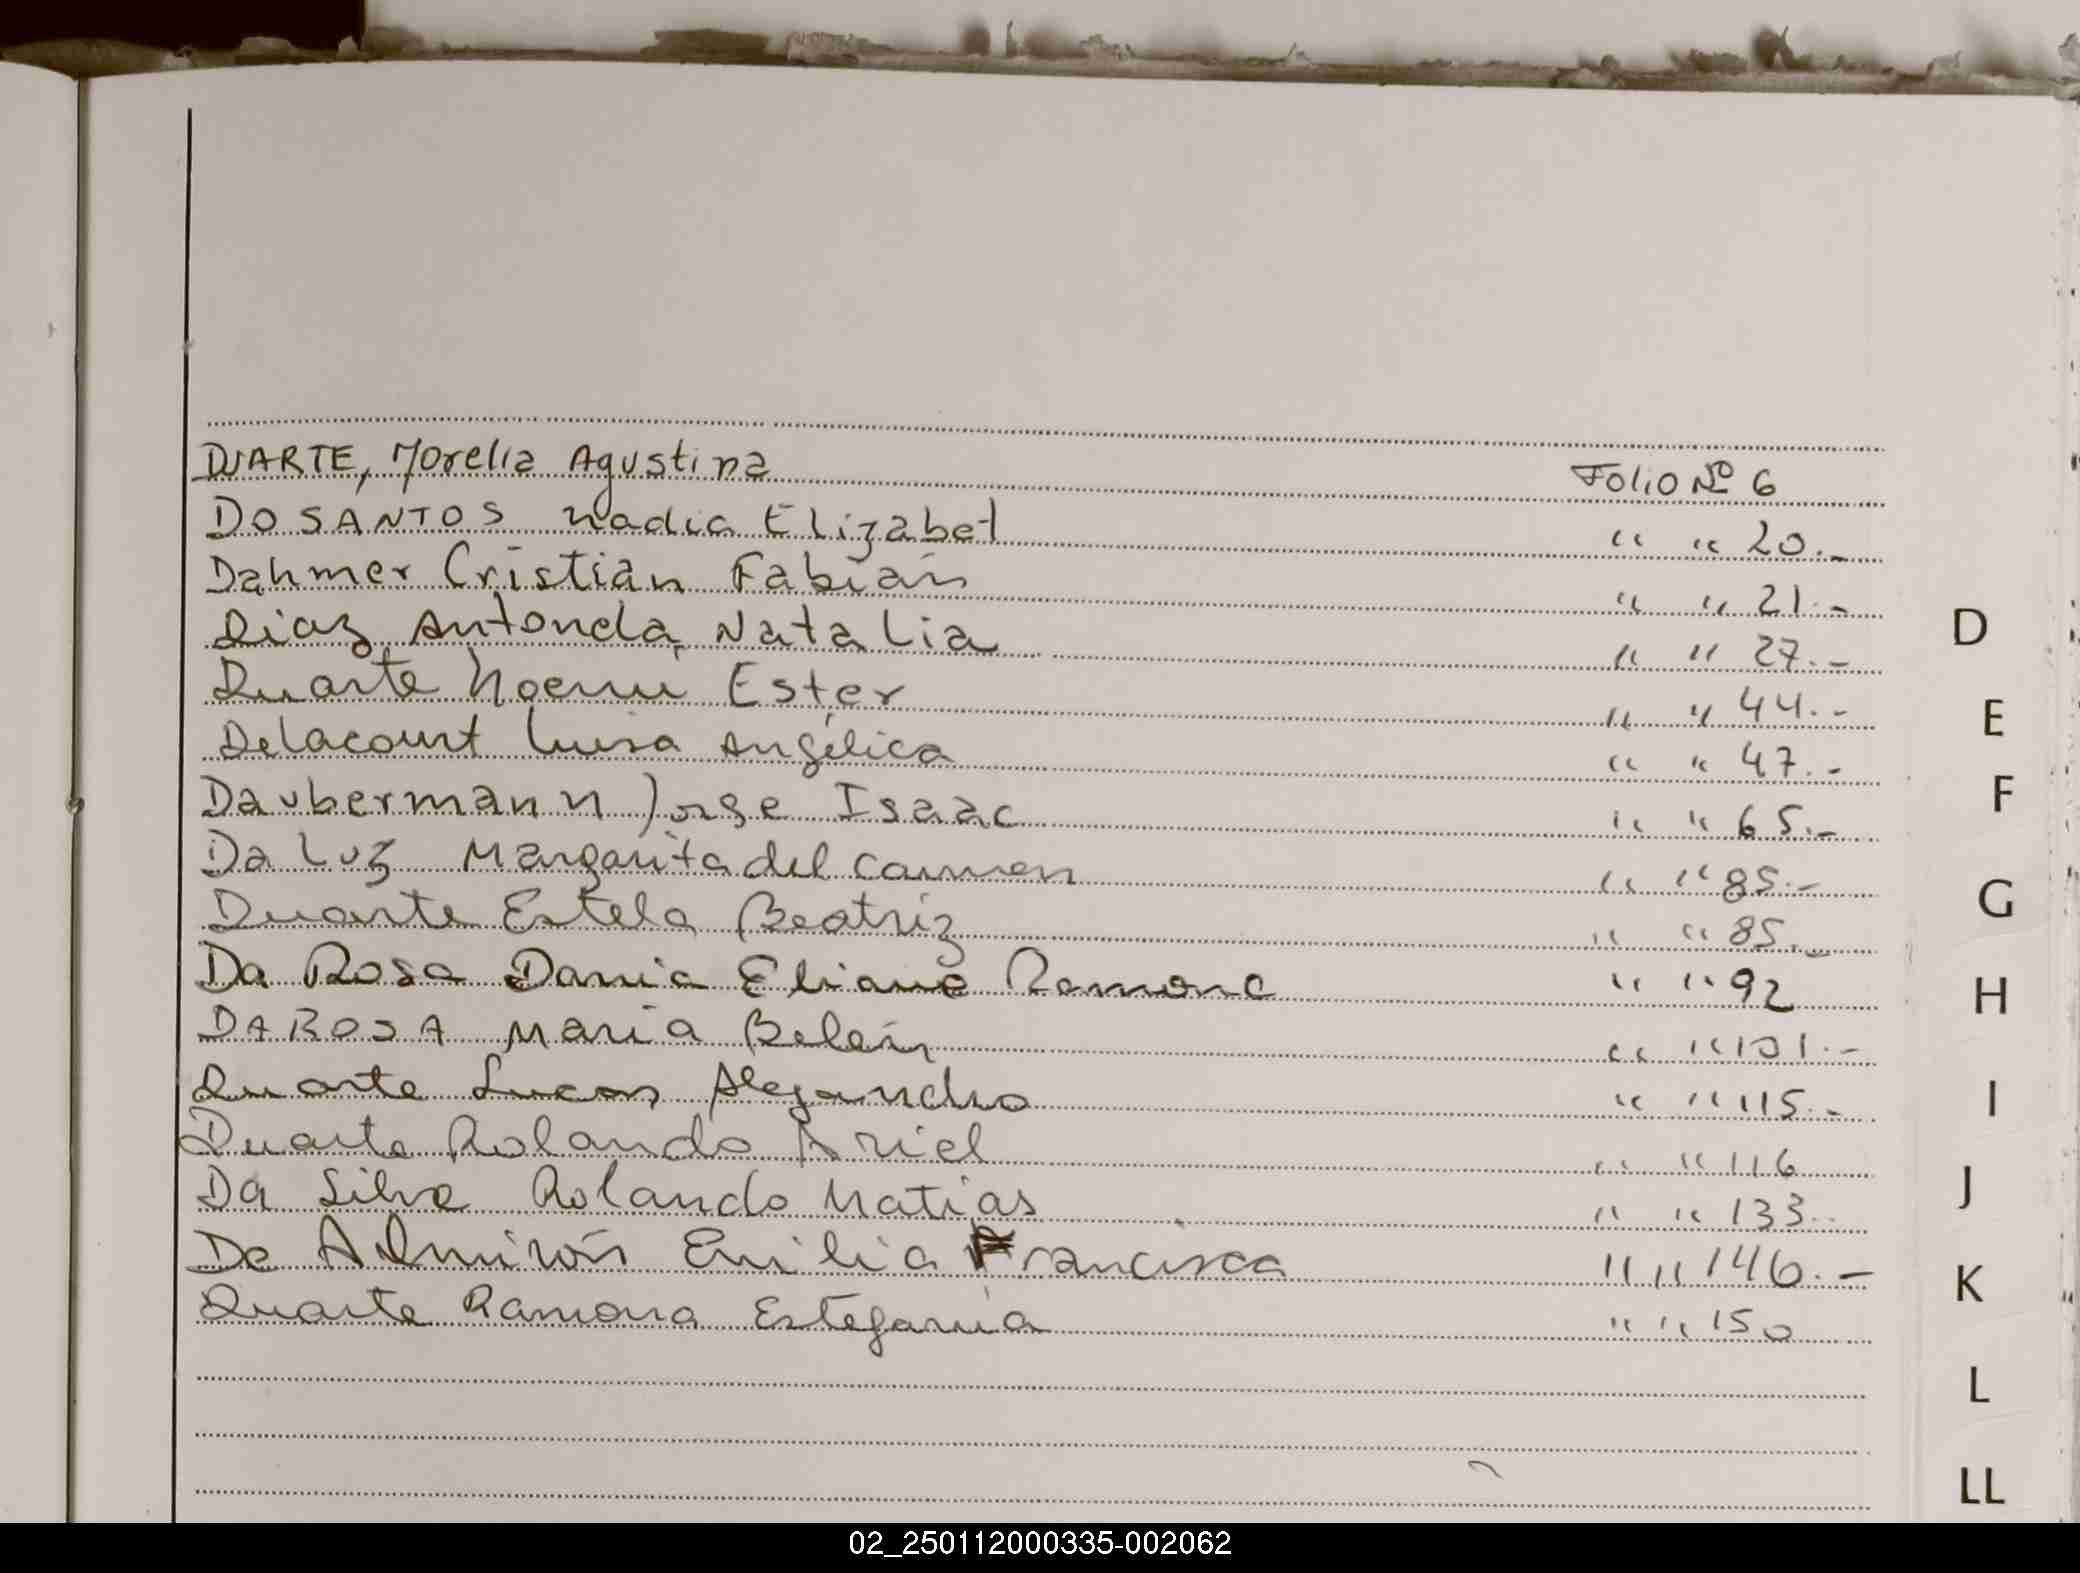 DUARTE, Morelia Agustina Folio Nº 6
DOSANTOS Nadia Elizabet " " 20.-
Dahmer Cristian Fabián " " 21.-
Diaz Antonela, Natalia " " 27.-
Duarte Noemi Ester " " 44.-
Delacourt Luisa Angélica " " 47.-
Daubermann Jorge Isaac " " 65.-
Da Luz Margarita del Carmen " " 85.-
Duarte Estela Beatriz " " 85.-
Da Rosa Dania Eliane Ramona " " 92
DA ROSA Maria Belén " " 101.-
Duarte Lucas Alejandro " " 115.-
Duarte Rolando Ariel " " 116
Da Silva Rolando Matías " " 133.-
De Almirón Emilia Francisca " " 146.-
Duarte Ramona Estefania " " 150
D
E
F
G
H
I
J
K
L
LL
02_250112000335-002062